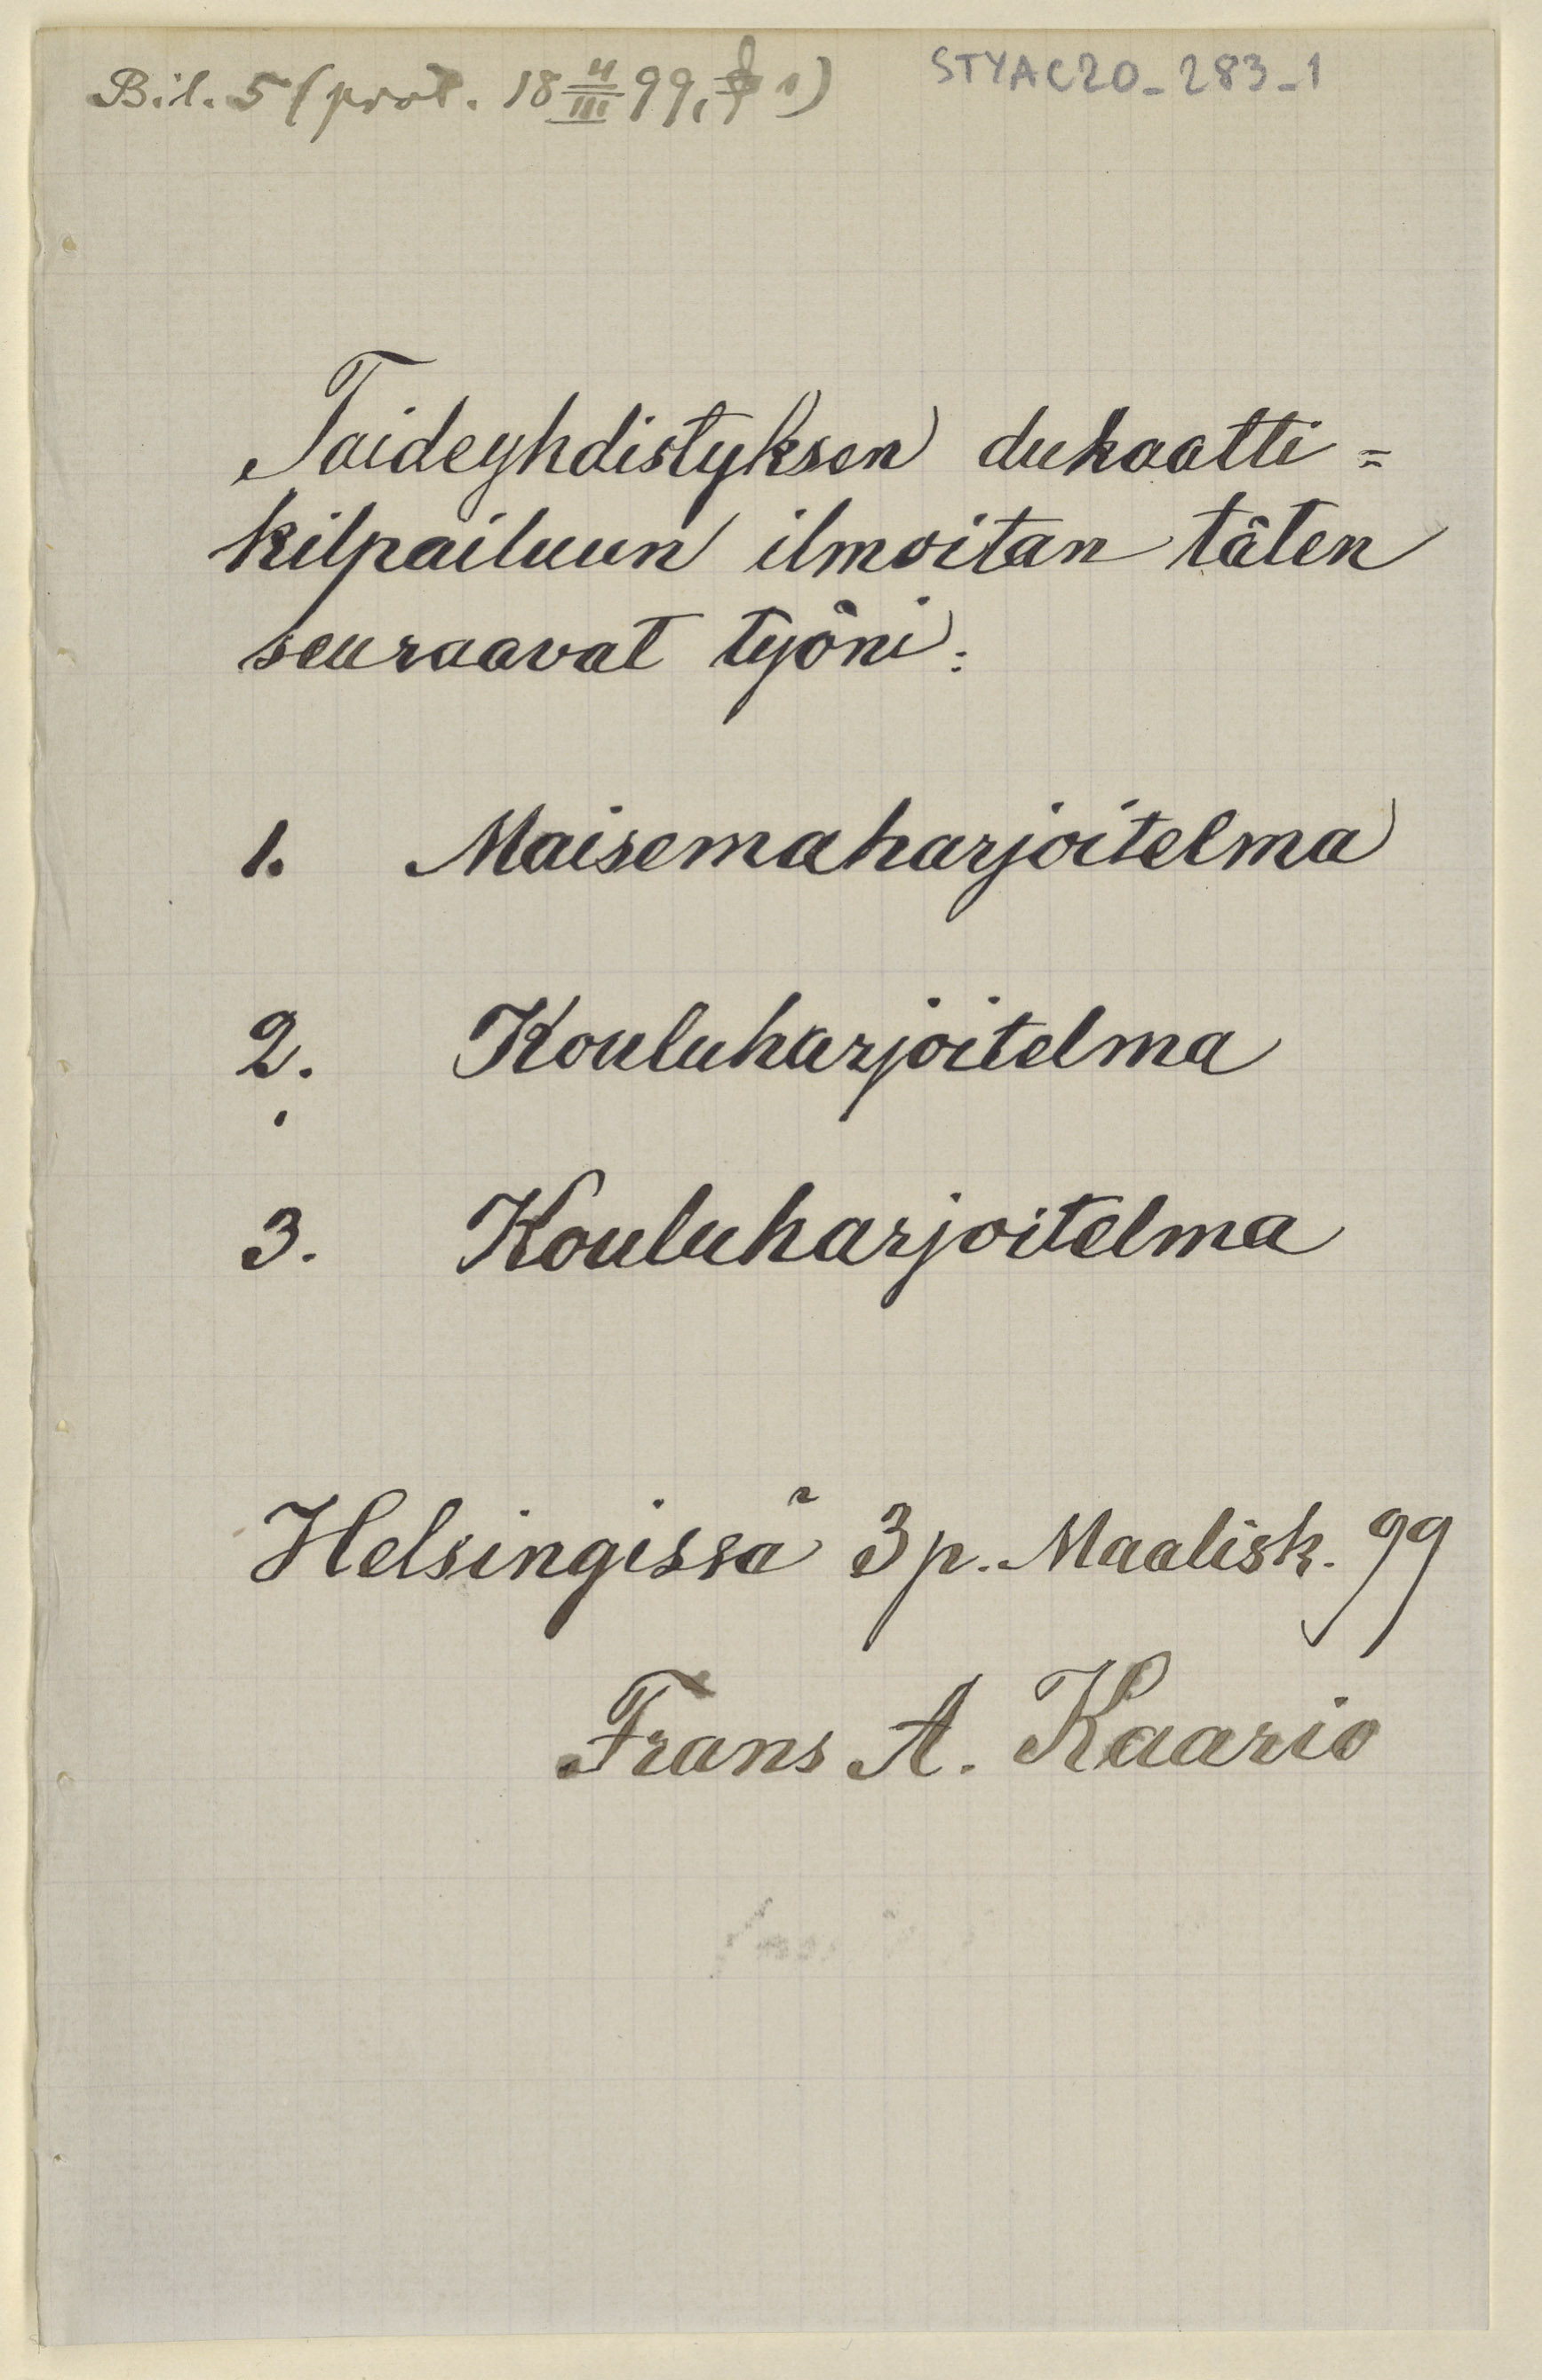 Bil. 5 (prot. 18 4/III 99, § 1)
STYAC20_283_1
Taideyhdistyksen dukaatti=
kilpailuun ilmoitan täten
seuraavat työni:
1. Maisemaharjoitelma
2. Kouluharjoitelma
3. Kouluharjoitelma
Helsingissä 3 p. Maalisk. 99
Frans A. Kaario